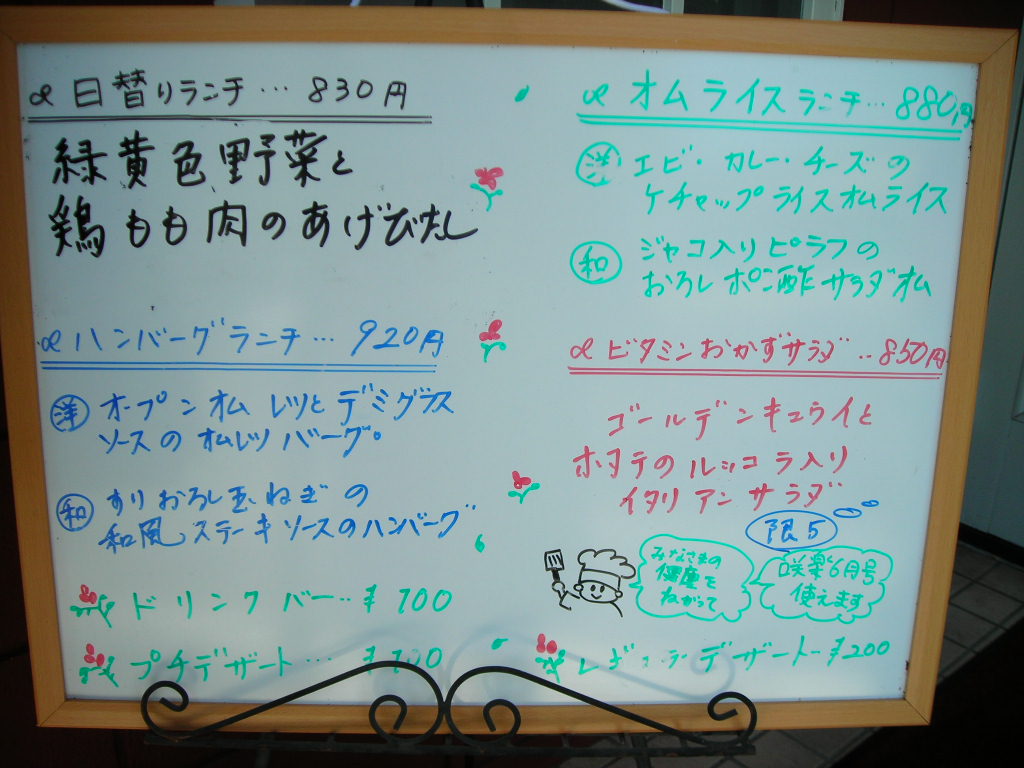 日替りランチ…830円
緑黄色野菜と
鶏もも肉のあげびたし
ハンバーグランチ…920円
洋 オープンオムレツとデミグラス
ソースのオムレツバーグ。
和 すりおろし玉ねぎの
和風ステーキソースのハンバーグ
ドリンクバー…¥100
プチデザート…¥100
オムライスランチ…880円
洋 エビ・カレー・チーズの
ケチャップライスオムライス
和 ジャコ入りピラフの
おろしポン酢サラダオム
ビタミンおかずサラダ…850円
ゴールデンキュウイと
ホタテのルッコラ入り
イタリアンサラダ
限5
みなさまの
健康を
ねがって
咲楽6月号
使えます
レギュラーデザート…¥200